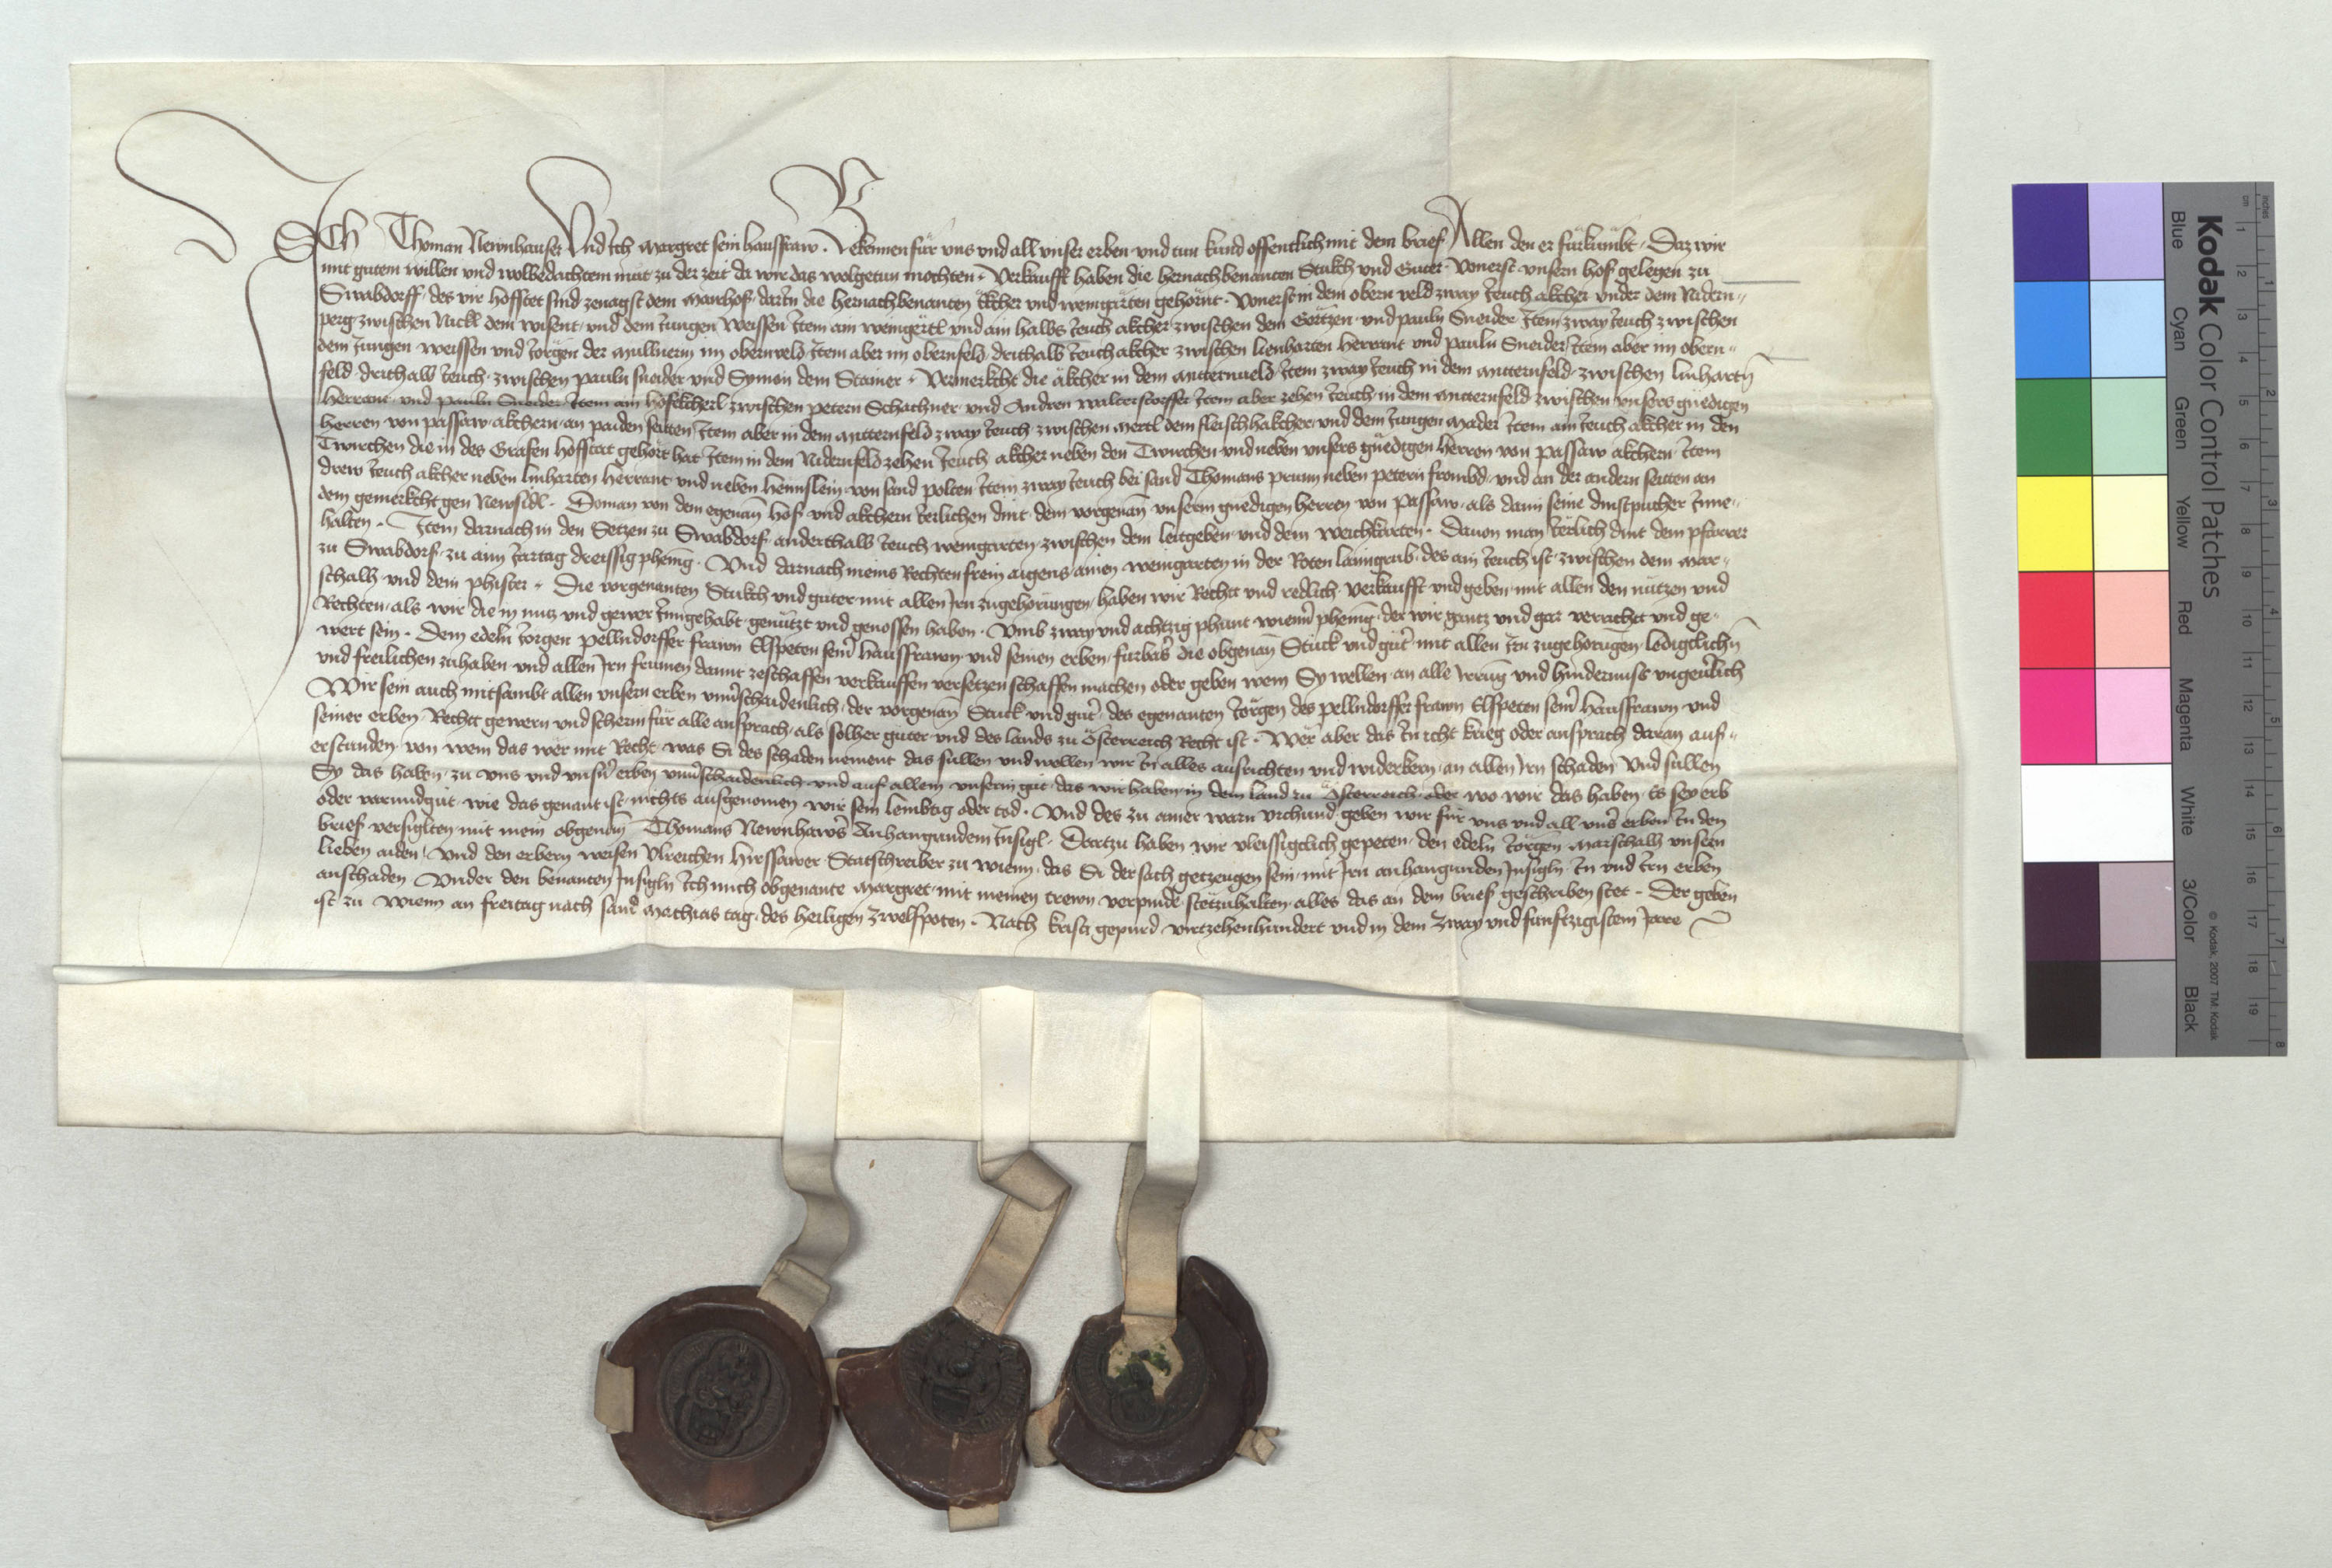 Ich Thoman Newnhauser Und ich Margret sein hausfraw. Bekennen für uns und all unser erben und tun kund offentlich mit dem brief Allen den er fürkumbt. Daz wir
mit gutem willen und wolbedachtem mut zu der zeit da wir das wolgetun mochten. Verkaufft haben die hernachbenanten Stukch und Guter. Vonerst unsern hof gelegen zu
Swabdorff des vir hofftet sind zenagst dem Mairhof darin die hernachbenanten ekcher und weingarten gehornt. Vonerst in dem obern veld zway ieuch akcher under dem Nidern
perg zwischen Nickl dem wisent und dem iungen Weissen Item ain weingertl und ain halbs ieuch akcher zwischen dem Gortzen und pauln Sneider Item zway ieuch zwischen
dem Jungen weissen und iorgen der mullnerin im obernveld Item aber im obernfeld drithalb ieuch akcher zwischen lienharten Herrant und pauln Sneider Item aber im obern
feld drithalb ieuch zwischen pauln sneider und Symon dem Stainer. Vermerkcht die akcher in dem mitternveld Item zway ieuch in dem mitternfeld zwischen linhartn
Herrant und pauln Sneider Item ain hofekcherl zwischen petern Schachner und Andren waltersdorffer Item aber zehen ieuch in dem mitternfeld zwischen unsers gnedigen
herren von passaw akchern an paiden seitten Item aber in dem mitternfeld zway ieuch zwischen mertl dem fleischhakcher und dem iungen mader Item ain ieuch akcher in den
Twirchen die in des Grafen hofftat gehört hat Item in dem Nidernfeld zehen ieuch akcher neben den Twirchen und neben unsers gnedigen herren von passaw akchern Item
drew ieuch akcher neben linharten Herrant und neben hennslein von sand polten Item zway ieuch bei sand Thomans prunn neben petern frombd und an der andern seitten an
dem gemerkcht gen Neusidl. Doman von dem egenan hof und akchern ierlichen dint dem vorgenan unserm gnedigen herren von Passaw als dann seine dinstpucher inne
halten. Item darnach in den Setzen zu Swabdorf anderthalb ieuch weingarten zwischen dem leitgeben und dem weichkarten. Dauon man ierlich dint dem pfarrer
zu Swabdorf zu aim iartag dreissig phening. Und darnach meins Rechten frein aigens ainen weingarten in der Roten laimgrub des ain ieuch ist zwischen dem mar
schalh und dem phister. Die vorgenanten Stukch und guter mit allen Irn zugehorungen haben wir Recht und redlich verkaufft und geben mit allen den nutzen und
Rechten als wir die in nutz und gewer inngehabt genützt und genossen haben. Umb zway und achtzig phunt wienner phening der wir gantz und gar verricht und ge
wert sein. Dem edeln iorgen pellndorffer frawn Elspeten seiner hausfrawn und seinen erben furbas die obgenan Stuck und guter mit allen irn zugehorungen ledigklichn
und freilichen zuhaben und allen Irn frumen damit zeschaffen verkauffen versetzen schaffen machen oder geben wem Sy wellen an alle Irrung und hindernuss ungeuerlich
Wir sein auch mitsambt allen unsern erben unverschaidenlich der vorgenan Stuck und guter des egenanten iorgen des pellndorffer frawn Elspeten seiner hausfrawn und
seiner erben Recht gewern und scherm für alle ansprach als solher guter und des lands zu Österreich Recht ist. Wer aber das in icht krieg oder ansprach daran auf
erstunden von wem das wer mit Recht was Si des schaden nement das sullen und wellen wir in alles ausrichten und widerkern an allen Irn schaden Und sullen
Sy das haben zu uns und unsern erben unverschaidenlich und auf allem unserm gut das wir haben in dem land zu Österreich oder wo wir das haben Es sey erb
oder varundgut wie das genant ist nichts ausgenomen wir sein lembtig oder tod. Und des zu ainer warn urchund geben wir für uns und all unser erben in den
brief versiglten mit mein obgenan Thomans Newnhawser Anhangundem insigl. Dartzu haben wir vleissigclich gepeten den edeln iorgen Marschalh unsern
lieben aiden Und den erbern weisen Ulreichen hirssawer Statschreiber zu wienn das Si der sach getzeugen sein mit Irn anhangunden Insigln in und irn erben
anschaden Under den benanten Insigln ich mich obgenante Margret mit meinen trewn verpinde stetzuhalten alles das an dem brief geschriben stet. Der geben
ist zu Wienn an freitag nach sand Mathias tag des heiligen zwelfpoten. Nach kristi gepurd virtzehenhundert und in dem zway und funftzigistem Jare
Kodak Color Control Patches
Blue Cyan Green Yellow Red Magenta White 3/Color Black
© Kodak, 2007 TM: Kodak
cm 1 2 3 4 5 6 7 8 9 10 11 12 13 14 15 16 17 18 19
inches 1 2 3 4 5 6 7 8